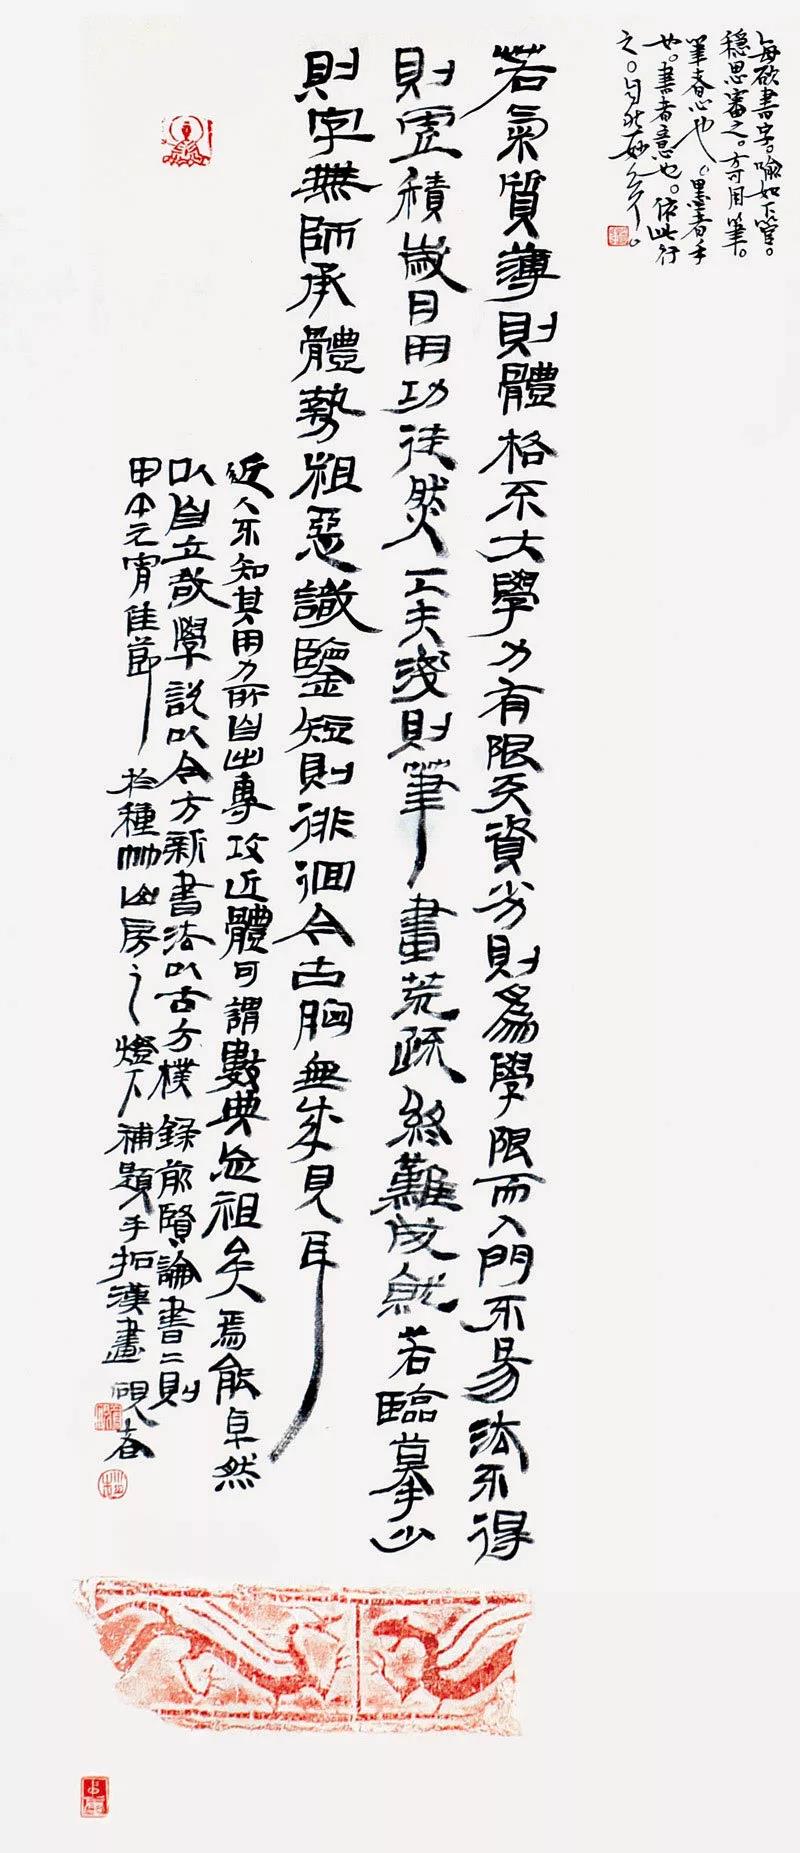 每欲書字。喻如下營。
穩思審之。方可用筆。
筆者心也。墨者手
也。書者意也。依此行
之。自然妙矣。
若氣質薄則體格不大學力有限天資劣則為學限而入門不易法不得
則虛積歲月用功徒然工夫淺則筆畫荒疏終難成就若臨摹少
則字無師承體勢粗惡識鑒短則徘徊今古胸無成見耳
近人不知其用力所自出專攻近體可謂數典忘祖矣焉能卓然
以自立哉學說以今方新書法以古方樸錄前賢論書二則
甲午元宵佳節於種山房之燈下補題手拓漢畫硯春